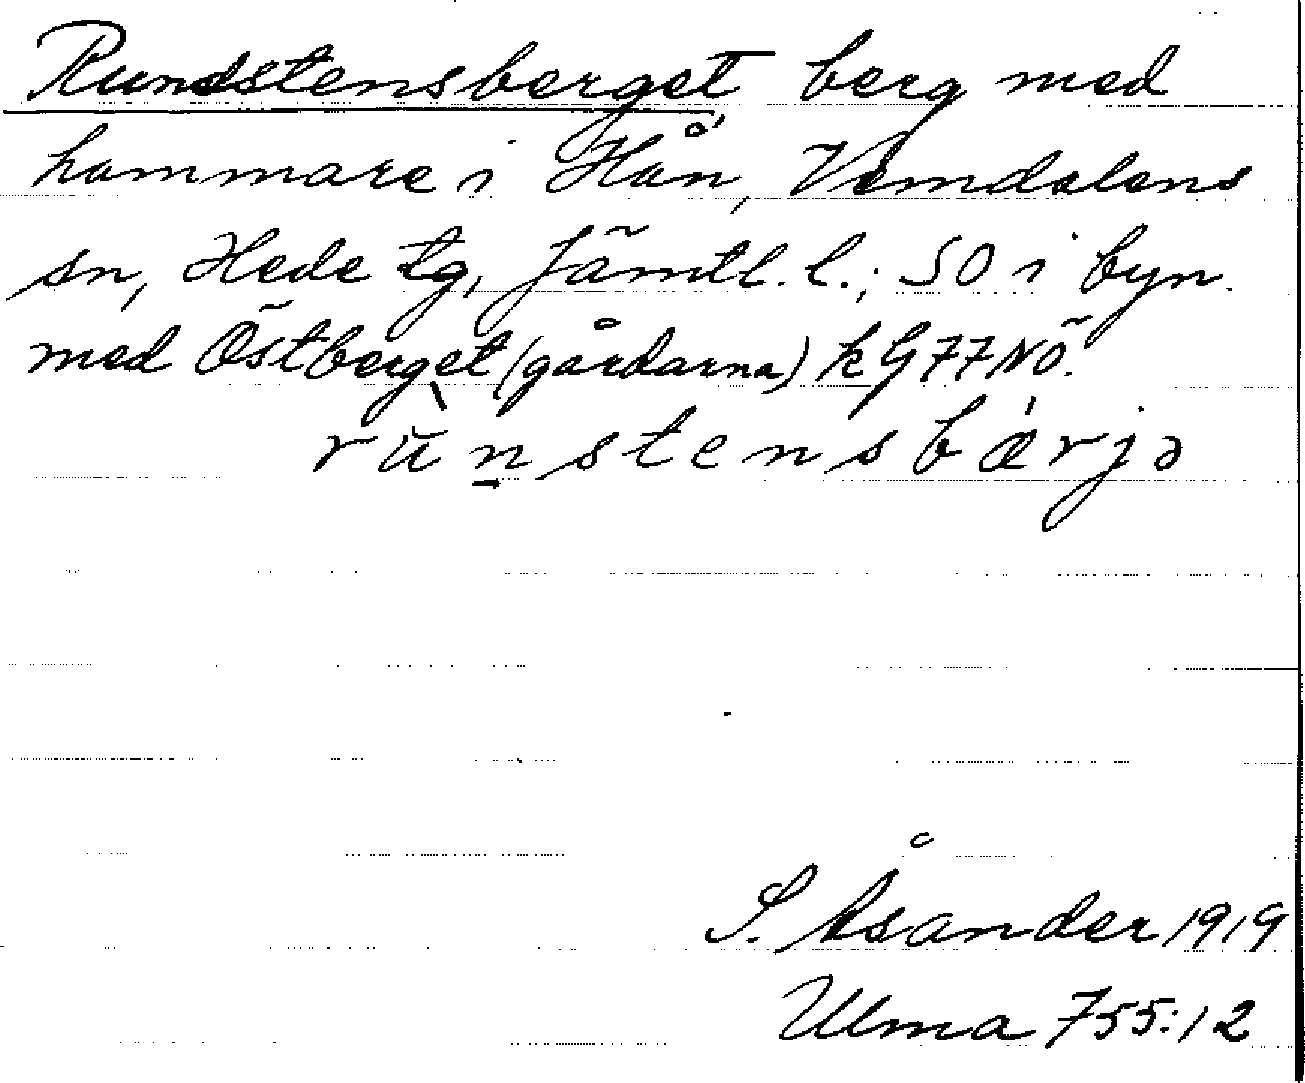 Rundstensberget berg med
hammare i Hån, Vemdalens
sn, Hede tg, Jämtl. l.; SO i byn
med Östberget (gårdarna) kG77NÖ.
rùn̠stensbǽrjə
S. Åsander 1919
Ulma 755:12